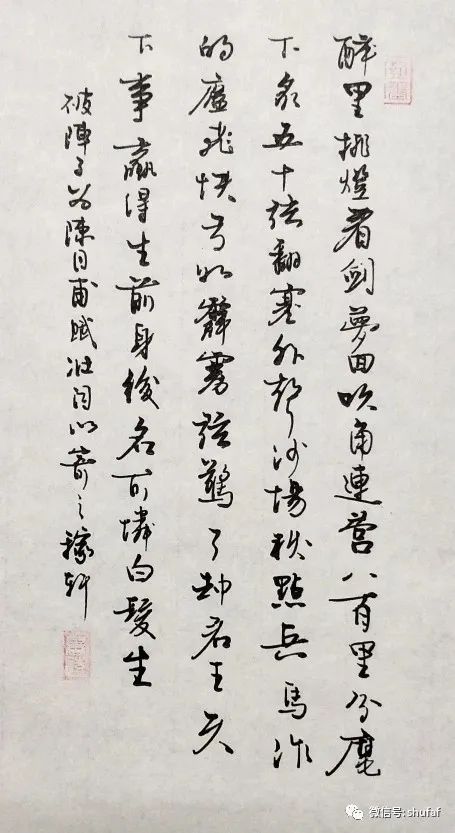 醉里挑燈看剑夢回吹角連营八百里分麾
下炙五十弦翻塞外声沙場秋點兵馬作
的盧飛快弓如霹雳弦驚了却君王天
下事赢得生前身後名可憐白髮生
破陣子为陳同甫賦壮词以寄之稼轩
微信号: shufaf